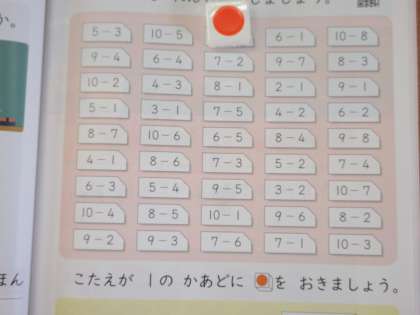 か。
しましょう。
5－3 10－5 6－1 10－8
9－4 6－4 7－2 9－7 8－3
10－2 4－3 8－1 2－1 9－1
5－1 3－1 7－5 4－2 6－2
8－7 10－6 6－5 8－4 9－8
4－1 8－6 7－3 5－2 7－4
6－3 5－4 9－5 3－2 10－7
10－4 8－5 10－1 9－6 8－2
9－2 9－3 7－6 7－1 10－3
ほん
こたえが 1の かあどに を おきましょう。